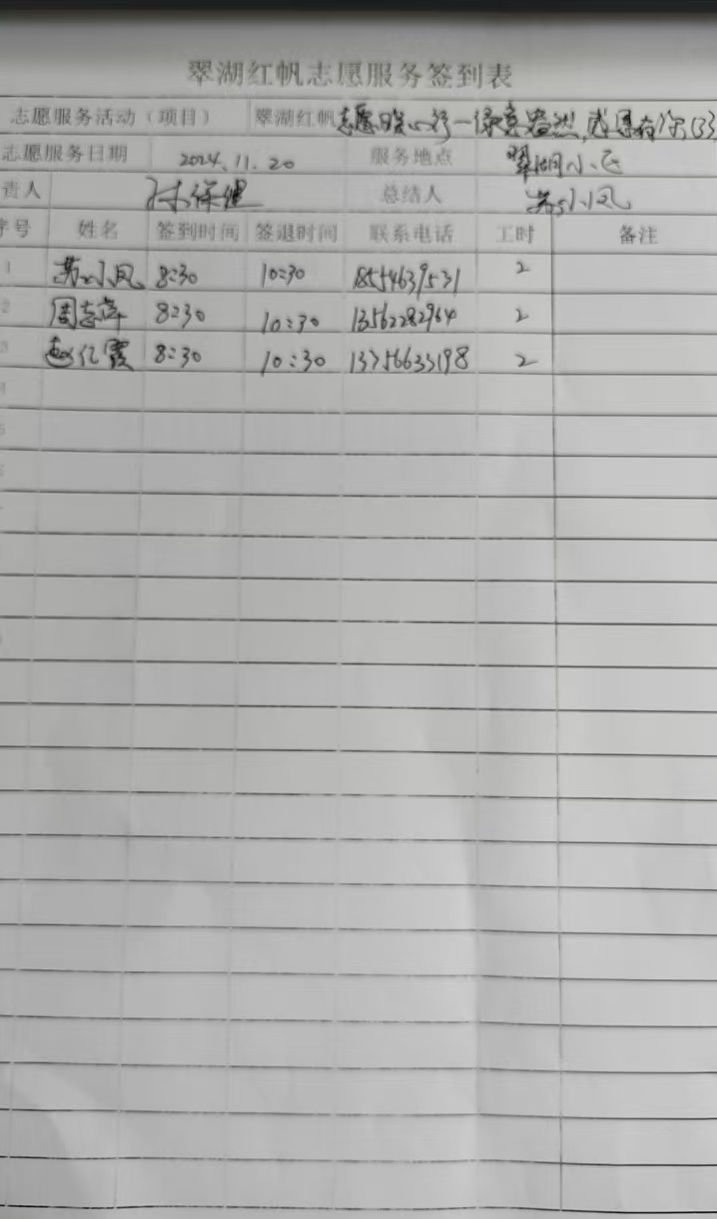 翠湖红帆志愿服务签到表
志愿服务活动（项目） 翠湖红帆志愿暖心行一缕
志愿服务日期 2024.11.20 服务地点 翠湖小区
责人 总结人 苏小凤
序号 姓名 签到时间 签退时间 联系电话 工时 备注
1 苏小凤 8:30 10:30 2
2 周志萍 8:30 10:30 13562282964 2
3 赵红霞 8:30 10:30 2
4
5
6